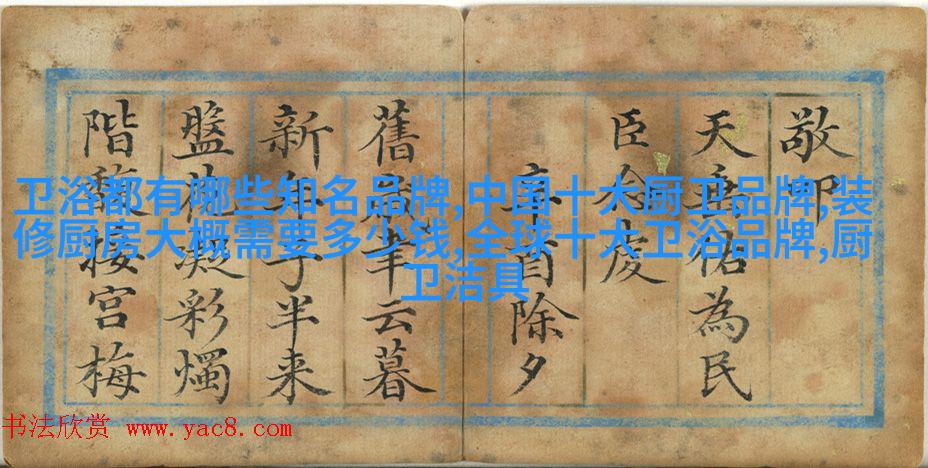 卫浴都有哪些知名品牌,中国十大厨卫品牌,装
修厨房大概需要多少钱,全球十大卫浴品牌,厨
卫洁具
敬
天垂佑為民
臣念虔
辛酉除夕
舊半云暮
新年子半来
盤花凝彩燭
階接宮梅
书法欣赏 www.yac8.com